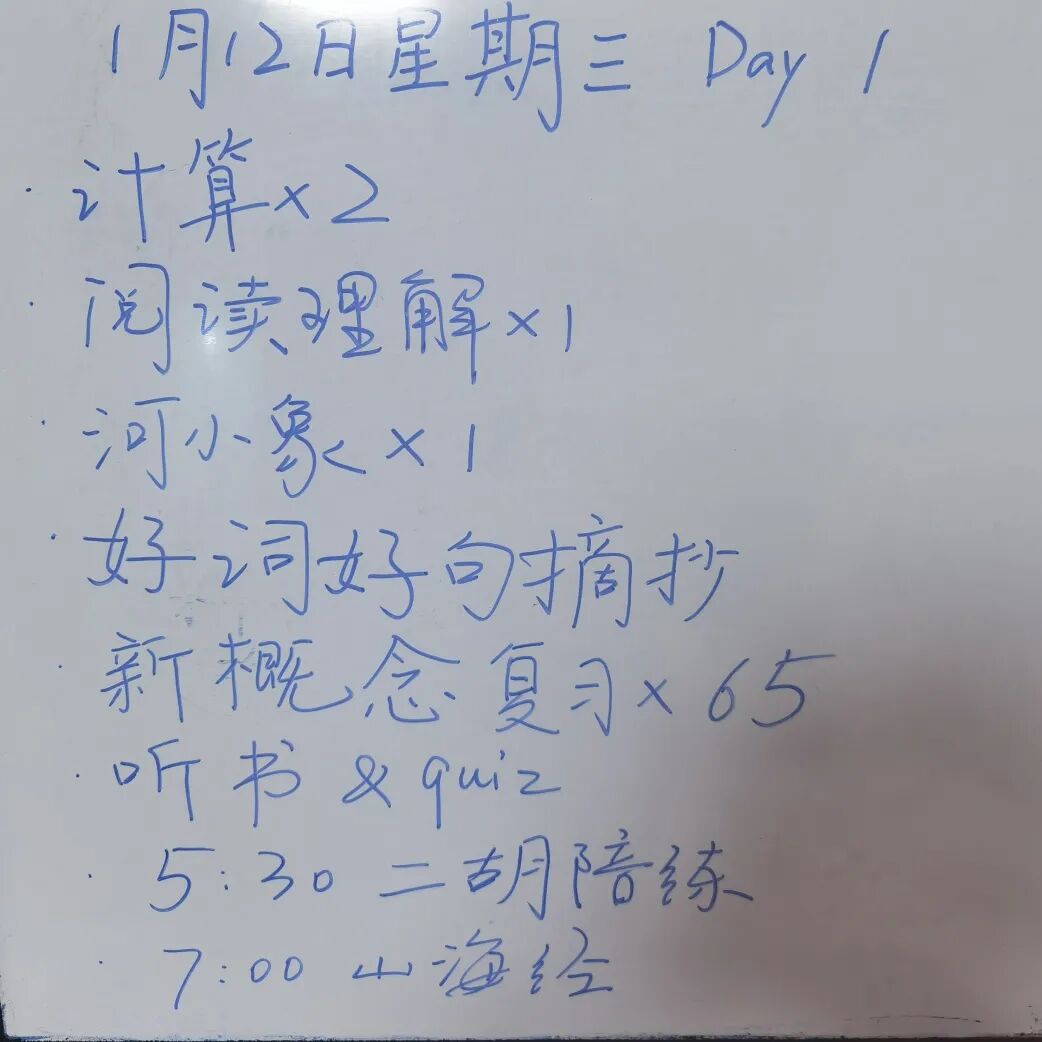 1月12日星期三 Day 1
· 计算×2
· 阅读理解×1
· 河小象×1
· 好词好句摘抄
· 新概念复习×65
· 听书 & quiz
· 5:30 二胡陪练
· 7:00 山海经